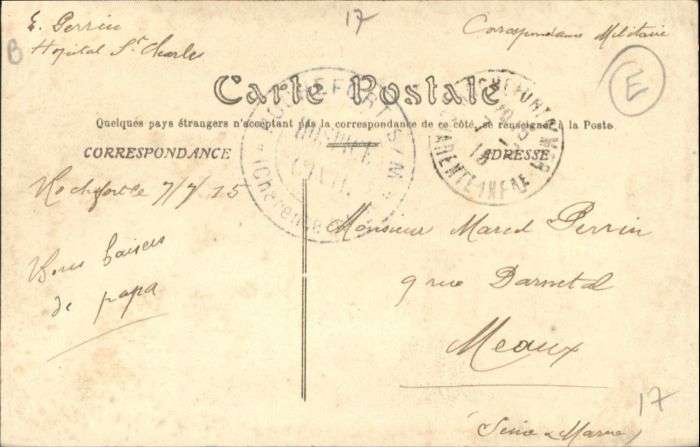 E. Perrin
Hopital St Charles
17
Correspondance Militaire
B
E
Carte Postale
Quelques pays étrangers n'acceptant pas la correspondance de ce côté, se renseigner à la Poste
CORRESPONDANCE
ADRESSE
ROCHEFORT S/MER
HOSPICE
CIVIL
ROCHEFORT
CHARENTE INFRE
Rochefort 7/7/15
Bons baisers
de papa
Monsieur Marcel Perrin
9 rue Darnetal
Meaux
Seine & Marne
17